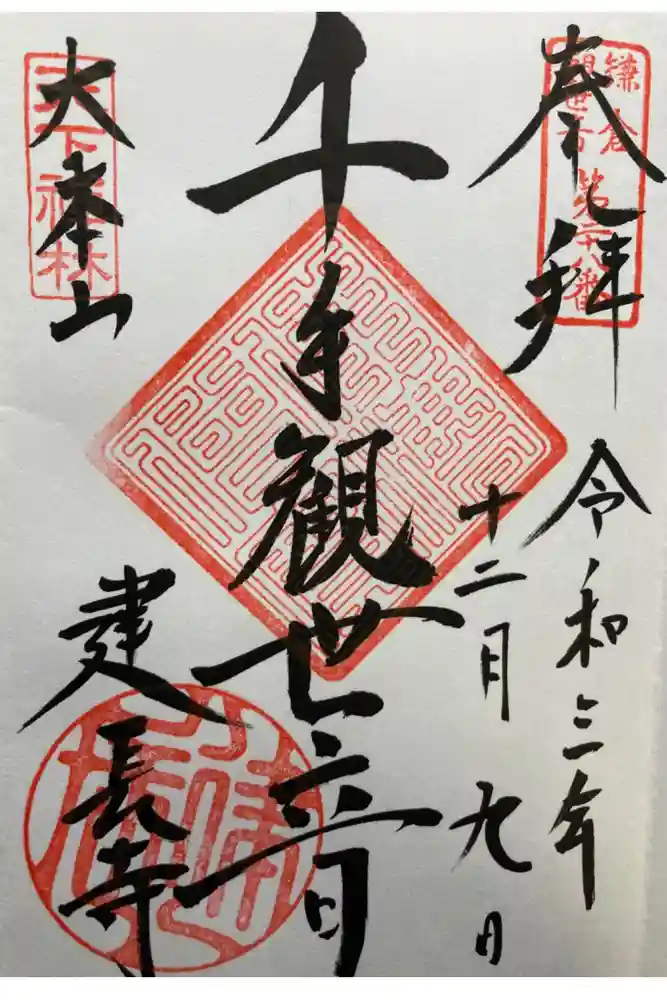 奉拝
鎌倉
観世音
第二十八番
令和三年
十二月九日
千手観世音
大本山
天下禅林
建長寺